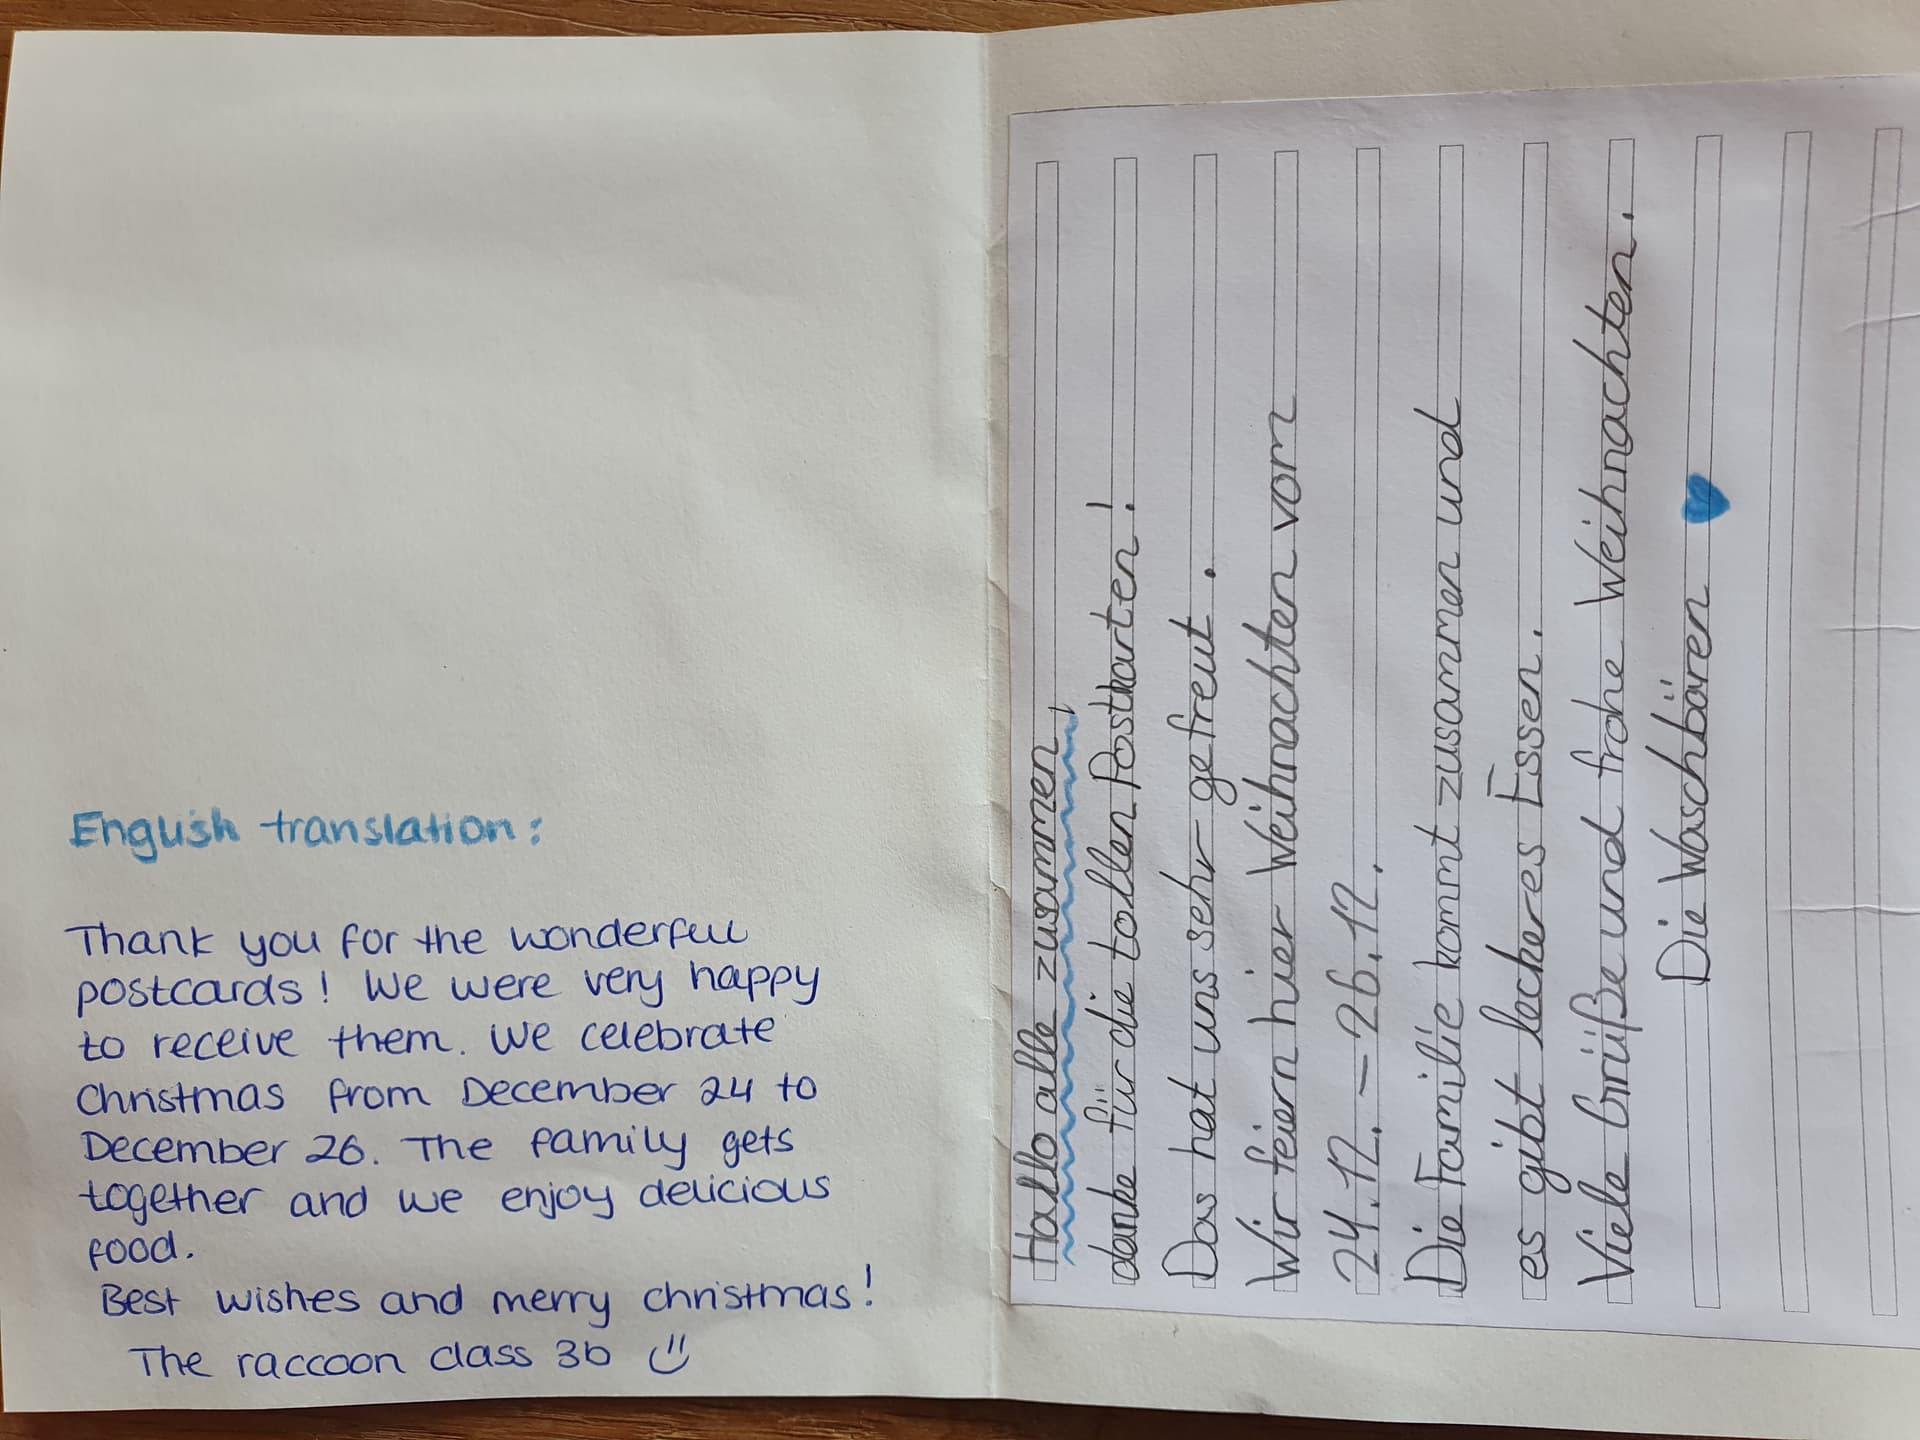 English translation:
Thank you for the wonderfull
postcards! We were very happy
to receive them. We celebrate
Christmas from December 24 to
December 26. The family gets
together and we enjoy delicious
food.
Best wishes and merry christmas!
The raccoon class 3b
Hallo alle zusammen,
danke für die tollen Postkarten!
Das hat uns sehr gefreut.
Wir feiern hier Weihnachten vom
24.12. – 26.12.
Die Familie kommt zusammen und
es gibt leckeres Essen.
Viele Grüße und frohe Weihnachten.
Die Waschbären